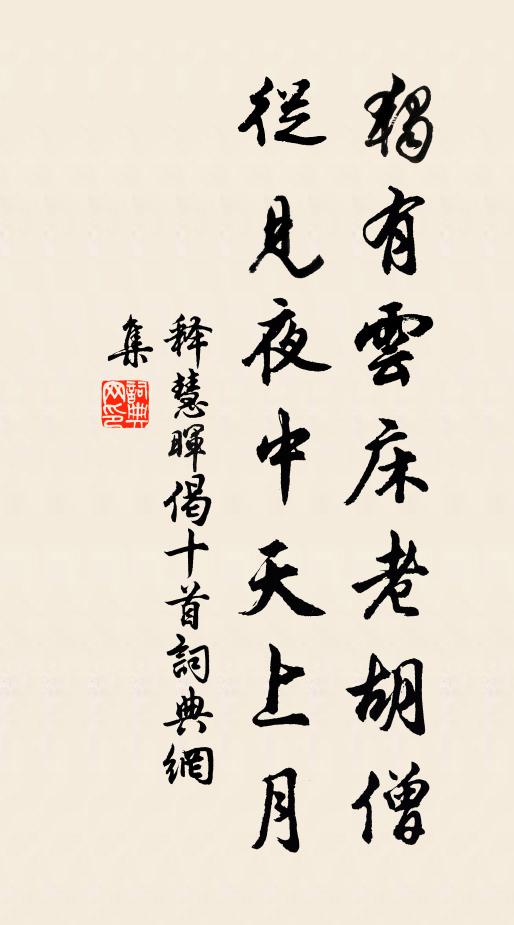 獨有雲床老胡僧
從見夜中天上月
释慧暉偈十首詞典網
集
詞典網印